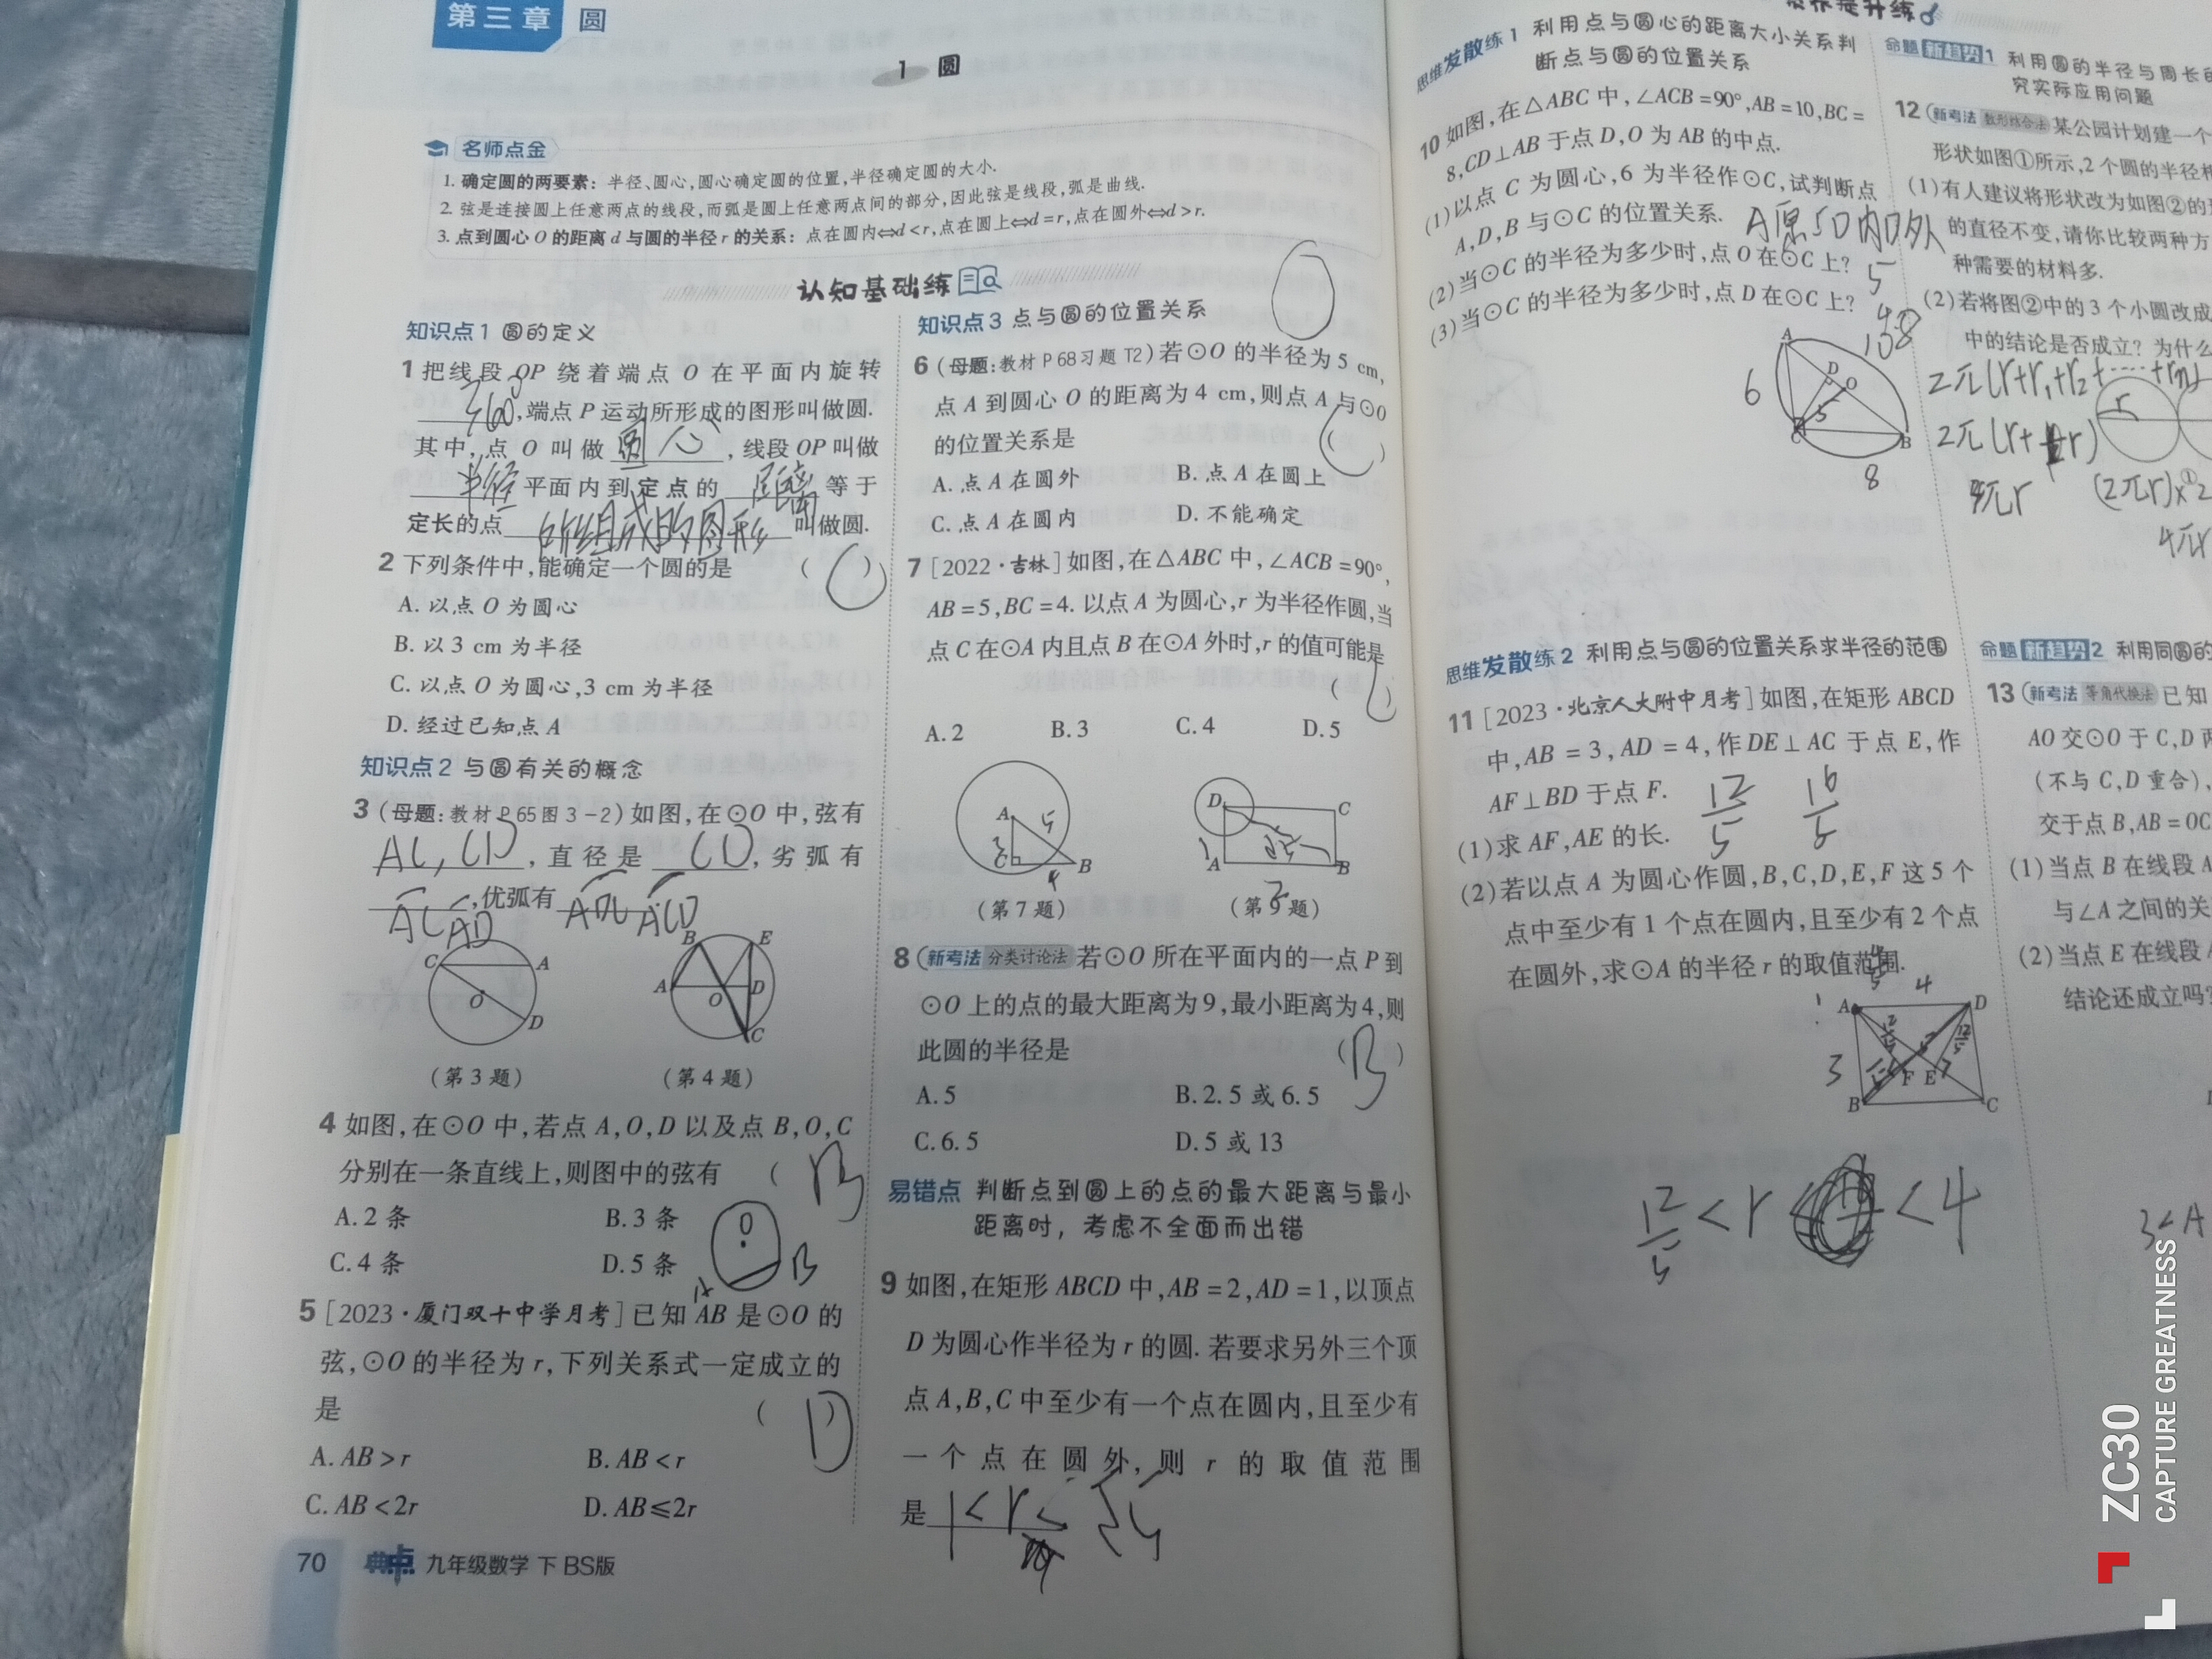 第三章 圆
1 圆
名师点金
1. 确定圆的两要素：半径、圆心，圆心确定圆的位置，半径确定圆的大小.
2. 弦是连接圆上任意两点的线段，而弧是圆上任意两点间的部分，因此弦是线段，弧是曲线.
3. 点到圆心 O 的距离 d 与圆的半径 r 的关系：点在圆内⇔d<r，点在圆上⇔d=r，点在圆外⇔d>r.
认知基础练
知识点1 圆的定义
1 把线段 OP 绕着端点 O 在平面内旋转
360°，端点 P 运动所形成的图形叫做圆.
其中，点 O 叫做 圆心，线段 OP 叫做
半径 平面内到定点的 距离 等于
定长的点 所组成的图形 叫做圆.
2 下列条件中，能确定一个圆的是 ( C )
A. 以点 O 为圆心
B. 以 3 cm 为半径
C. 以点 O 为圆心，3 cm 为半径
D. 经过已知点 A
知识点2 与圆有关的概念
3 (母题：教材 P65 图 3-2) 如图，在⊙O 中，弦有
AC，CD，直径是 CD，劣弧有
AC AD，优弧有 ADC ACD
C A O D
(第 3 题)
B E A O D C
(第 4 题)
4 如图，在⊙O 中，若点 A，O，D 以及点 B，O，C
分别在一条直线上，则图中的弦有 ( B
A. 2 条 B. 3 条
C. 4 条 D. 5 条
O
A B
5 [2023·厦门双十中学月考] 已知 AB 是⊙O 的
弦，⊙O 的半径为 r，下列关系式一定成立的
是 ( D )
A. AB>r B. AB<r
C. AB<2r D. AB⩽2r
70 典中点 九年级数学 下 BS版
知识点3 点与圆的位置关系
6 (母题：教材 P68 习题 T2) 若⊙O 的半径为 5 cm，
点 A 到圆心 O 的距离为 4 cm，则点 A 与⊙O
的位置关系是 ( C )
A. 点 A 在圆外 B. 点 A 在圆上
C. 点 A 在圆内 D. 不能确定
7 [2022·吉林] 如图，在△ABC 中，∠ACB=90°，
AB=5，BC=4. 以点 A 为圆心，r 为半径作圆，当
点 C 在⊙A 内且点 B 在⊙A 外时，r 的值可能是
( C )
A. 2 B. 3 C. 4 D. 5
A 5 3 C B 4
(第 7 题)
D C 1 A B 2
(第 9 题)
8 (新考法 分类讨论法) 若⊙O 所在平面内的一点 P 到
⊙O 上的点的最大距离为 9，最小距离为 4，则
此圆的半径是 ( B )
A. 5 B. 2.5 或 6.5
C. 6.5 D. 5 或 13
易错点 判断点到圆上的点的最大距离与最小
距离时，考虑不全面而出错
9 如图，在矩形 ABCD 中，AB=2，AD=1，以顶点
D 为圆心作半径为 r 的圆. 若要求另外三个顶
点 A，B，C 中至少有一个点在圆内，且至少有
一个点在圆外，则 r 的取值范围
是 1<r<
素养提升练
思维发散练1 利用点与圆心的距离大小关系判
断点与圆的位置关系
10 如图，在△ABC 中，∠ACB=90°，AB=10，BC=
8，CD⊥AB 于点 D，O 为 AB 的中点.
(1) 以点 C 为圆心，6 为半径作⊙C，试判断点
A，D，B 与⊙C 的位置关系.
(2) 当⊙C 的半径为多少时，点 O 在⊙C 上？ 5
(3) 当⊙C 的半径为多少时，点 D 在⊙C 上？ 4.8
A D O 6 5 C B 8
思维发散练2 利用点与圆的位置关系求半径的范围
11 [2023·北京人大附中月考] 如图，在矩形 ABCD
中，AB=3，AD=4，作 DE⊥AC 于点 E，作
AF⊥BD 于点 F. 12/5 16/5
(1) 求 AF，AE 的长.
(2) 若以点 A 为圆心作圆，B，C，D，E，F 这 5 个
点中至少有 1 个点在圆内，且至少有 2 个点
在圆外，求⊙A 的半径 r 的取值范围.
A 4 D 3 F E B C
12/5 <r <4
命题 新趋势1 利用圆的半径与周长的
究实际应用问题
12 (新考法 数形结合法) 某公园计划建一个
形状如图①所示，2 个圆的半径相
(1) 有人建议将形状改为如图②的形
的直径不变，请你比较两种方
种需要的材料多.
(2) 若将图②中的 3 个小圆改成
中的结论是否成立？为什么
2π(r+r₁+r₂+……+rₙ)
r
①
4πr
命题 新趋势2 利用同圆的
13 (新考法 等角代换法) 已知
AO 交⊙O 于 C，D 两
(不与 C，D 重合)，
交于点 B，AB=OC
(1) 当点 B 在线段 A
与∠A 之间的关
(2) 当点 E 在线段 A
结论还成立吗？
3<A
ZC30
CAPTURE GREATNESS